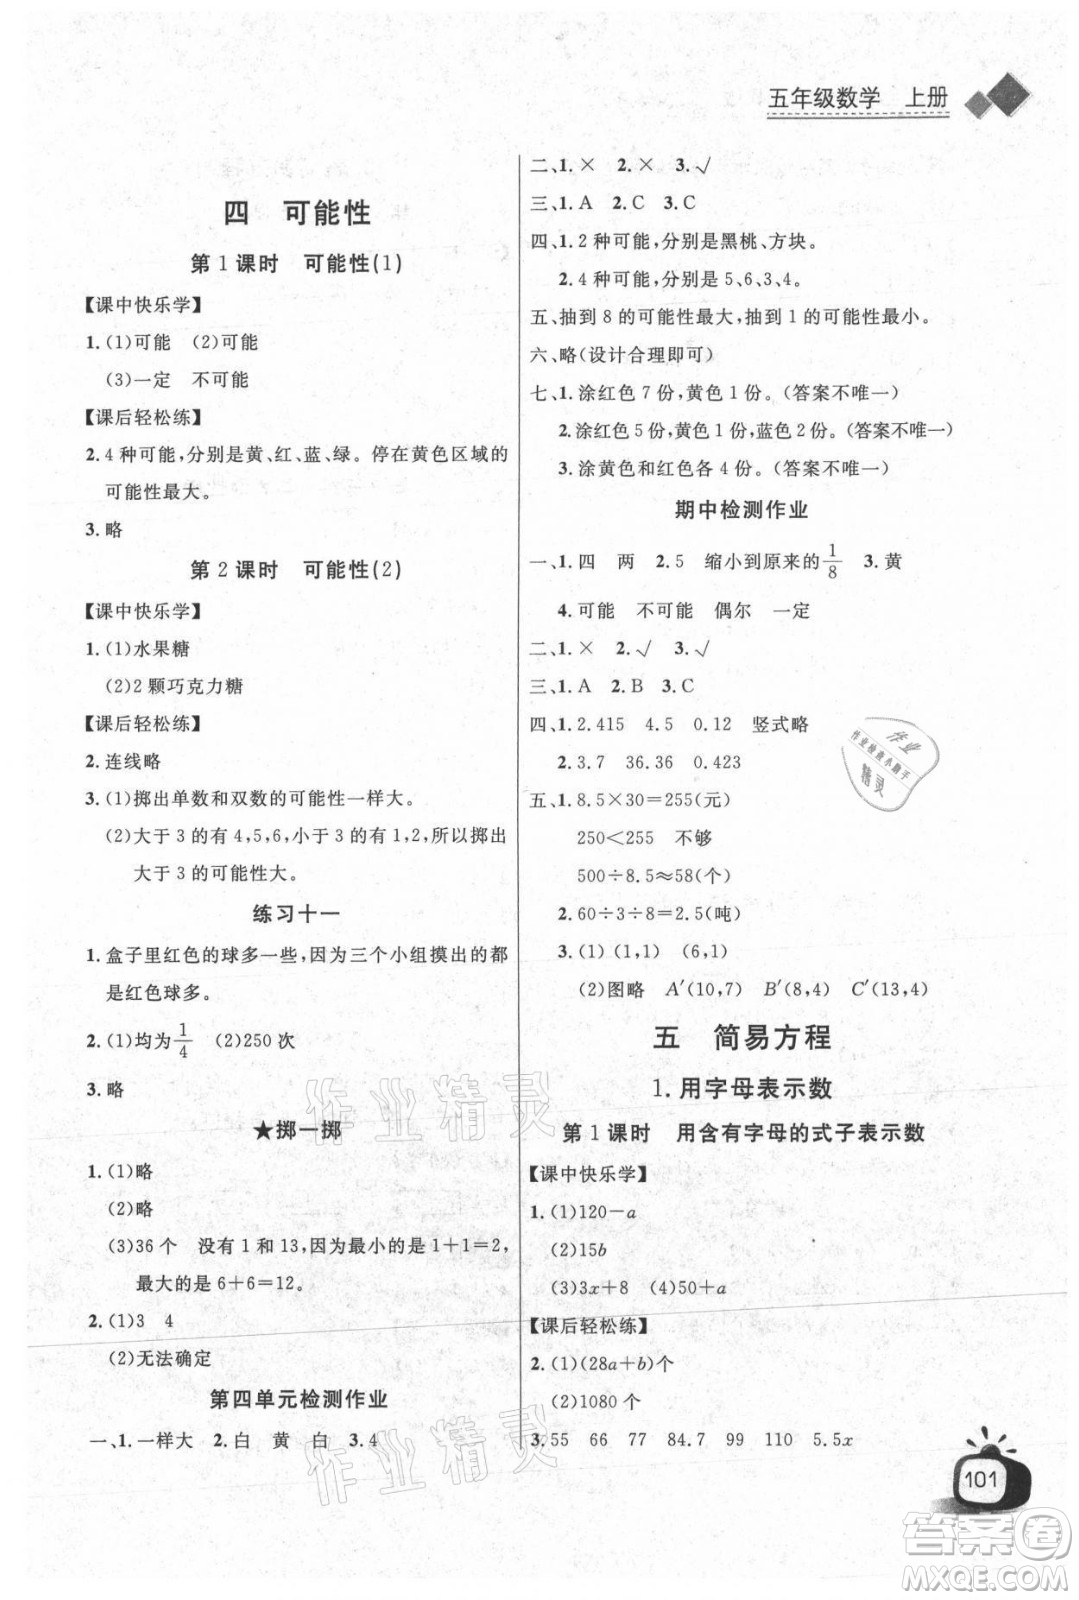 五年级数学 上册
四 可能性
第1课时 可能性(1)
【课中快乐学】
1.(1)可能 (2)可能
(3)一定 不可能
【课后轻松练】
2.4种可能,分别是黄、红、蓝、绿。停在黄色区域的
可能性最大。
3.略
第2课时 可能性(2)
【课中快乐学】
1.(1)水果糖
(2)2颗巧克力糖
【课后轻松练】
2.连线略
3.(1)掷出单数和双数的可能性一样大。
(2)大于3的有4,5,6,小于3的有1,2,所以掷出
大于3的可能性大。
练习十一
1.盒子里红色的球多一些,因为三个小组摸出的都
是红色球多。
2.(1)均为1/4 (2)250次
3.略
★掷一掷
1.(1)略
(2)略
(3)36个 没有1和13,因为最小的是1+1=2,
最大的是6+6=12。
2.(1)3 4
(2)无法确定
第四单元检测作业
一、1.一样大 2.白 黄 白 3.4
二、1.× 2.× 3.√
三、1.A 2.C 3.C
四、1.2种可能,分别是黑桃、方块。
2.4种可能,分别是5、6、3、4。
五、抽到8的可能性最大,抽到1的可能性最小。
六、略(设计合理即可)
七、1.涂红色7份,黄色1份。(答案不唯一)
2.涂红色5份,黄色1份,蓝色2份。(答案不唯一)
3.涂黄色和红色各4份。(答案不唯一)
期中检测作业
一、1.四 两 2.5 缩小到原来的1/8 3.黄
4.可能 不可能 偶尔 一定
二、1.× 2.√ 3.√
三、1.A 2.B 3.C
四、1.2.415 4.5 0.12 竖式略
2.3.7 36.36 0.423
五、1.8.5×30=255(元)
250<255 不够
500÷8.5≈58(个)
2.60÷3÷8=2.5(吨)
3.(1)(1,1) (6,1)
(2)图略 A′(10,7) B′(8,4) C′(13,4)
五 简易方程
1.用字母表示数
第1课时 用含有字母的式子表示数
【课中快乐学】
1.(1)120-a
(2)15b
(3)3x+8 (4)50+a
【课后轻松练】
2.(1)(28a+b)个
(2)1080个
3.55 66 77 84.7 99 110 5.5x
101
作业
作业检查小助手
精灵
作业精灵
作业精灵
答案卷
MXQE.COM